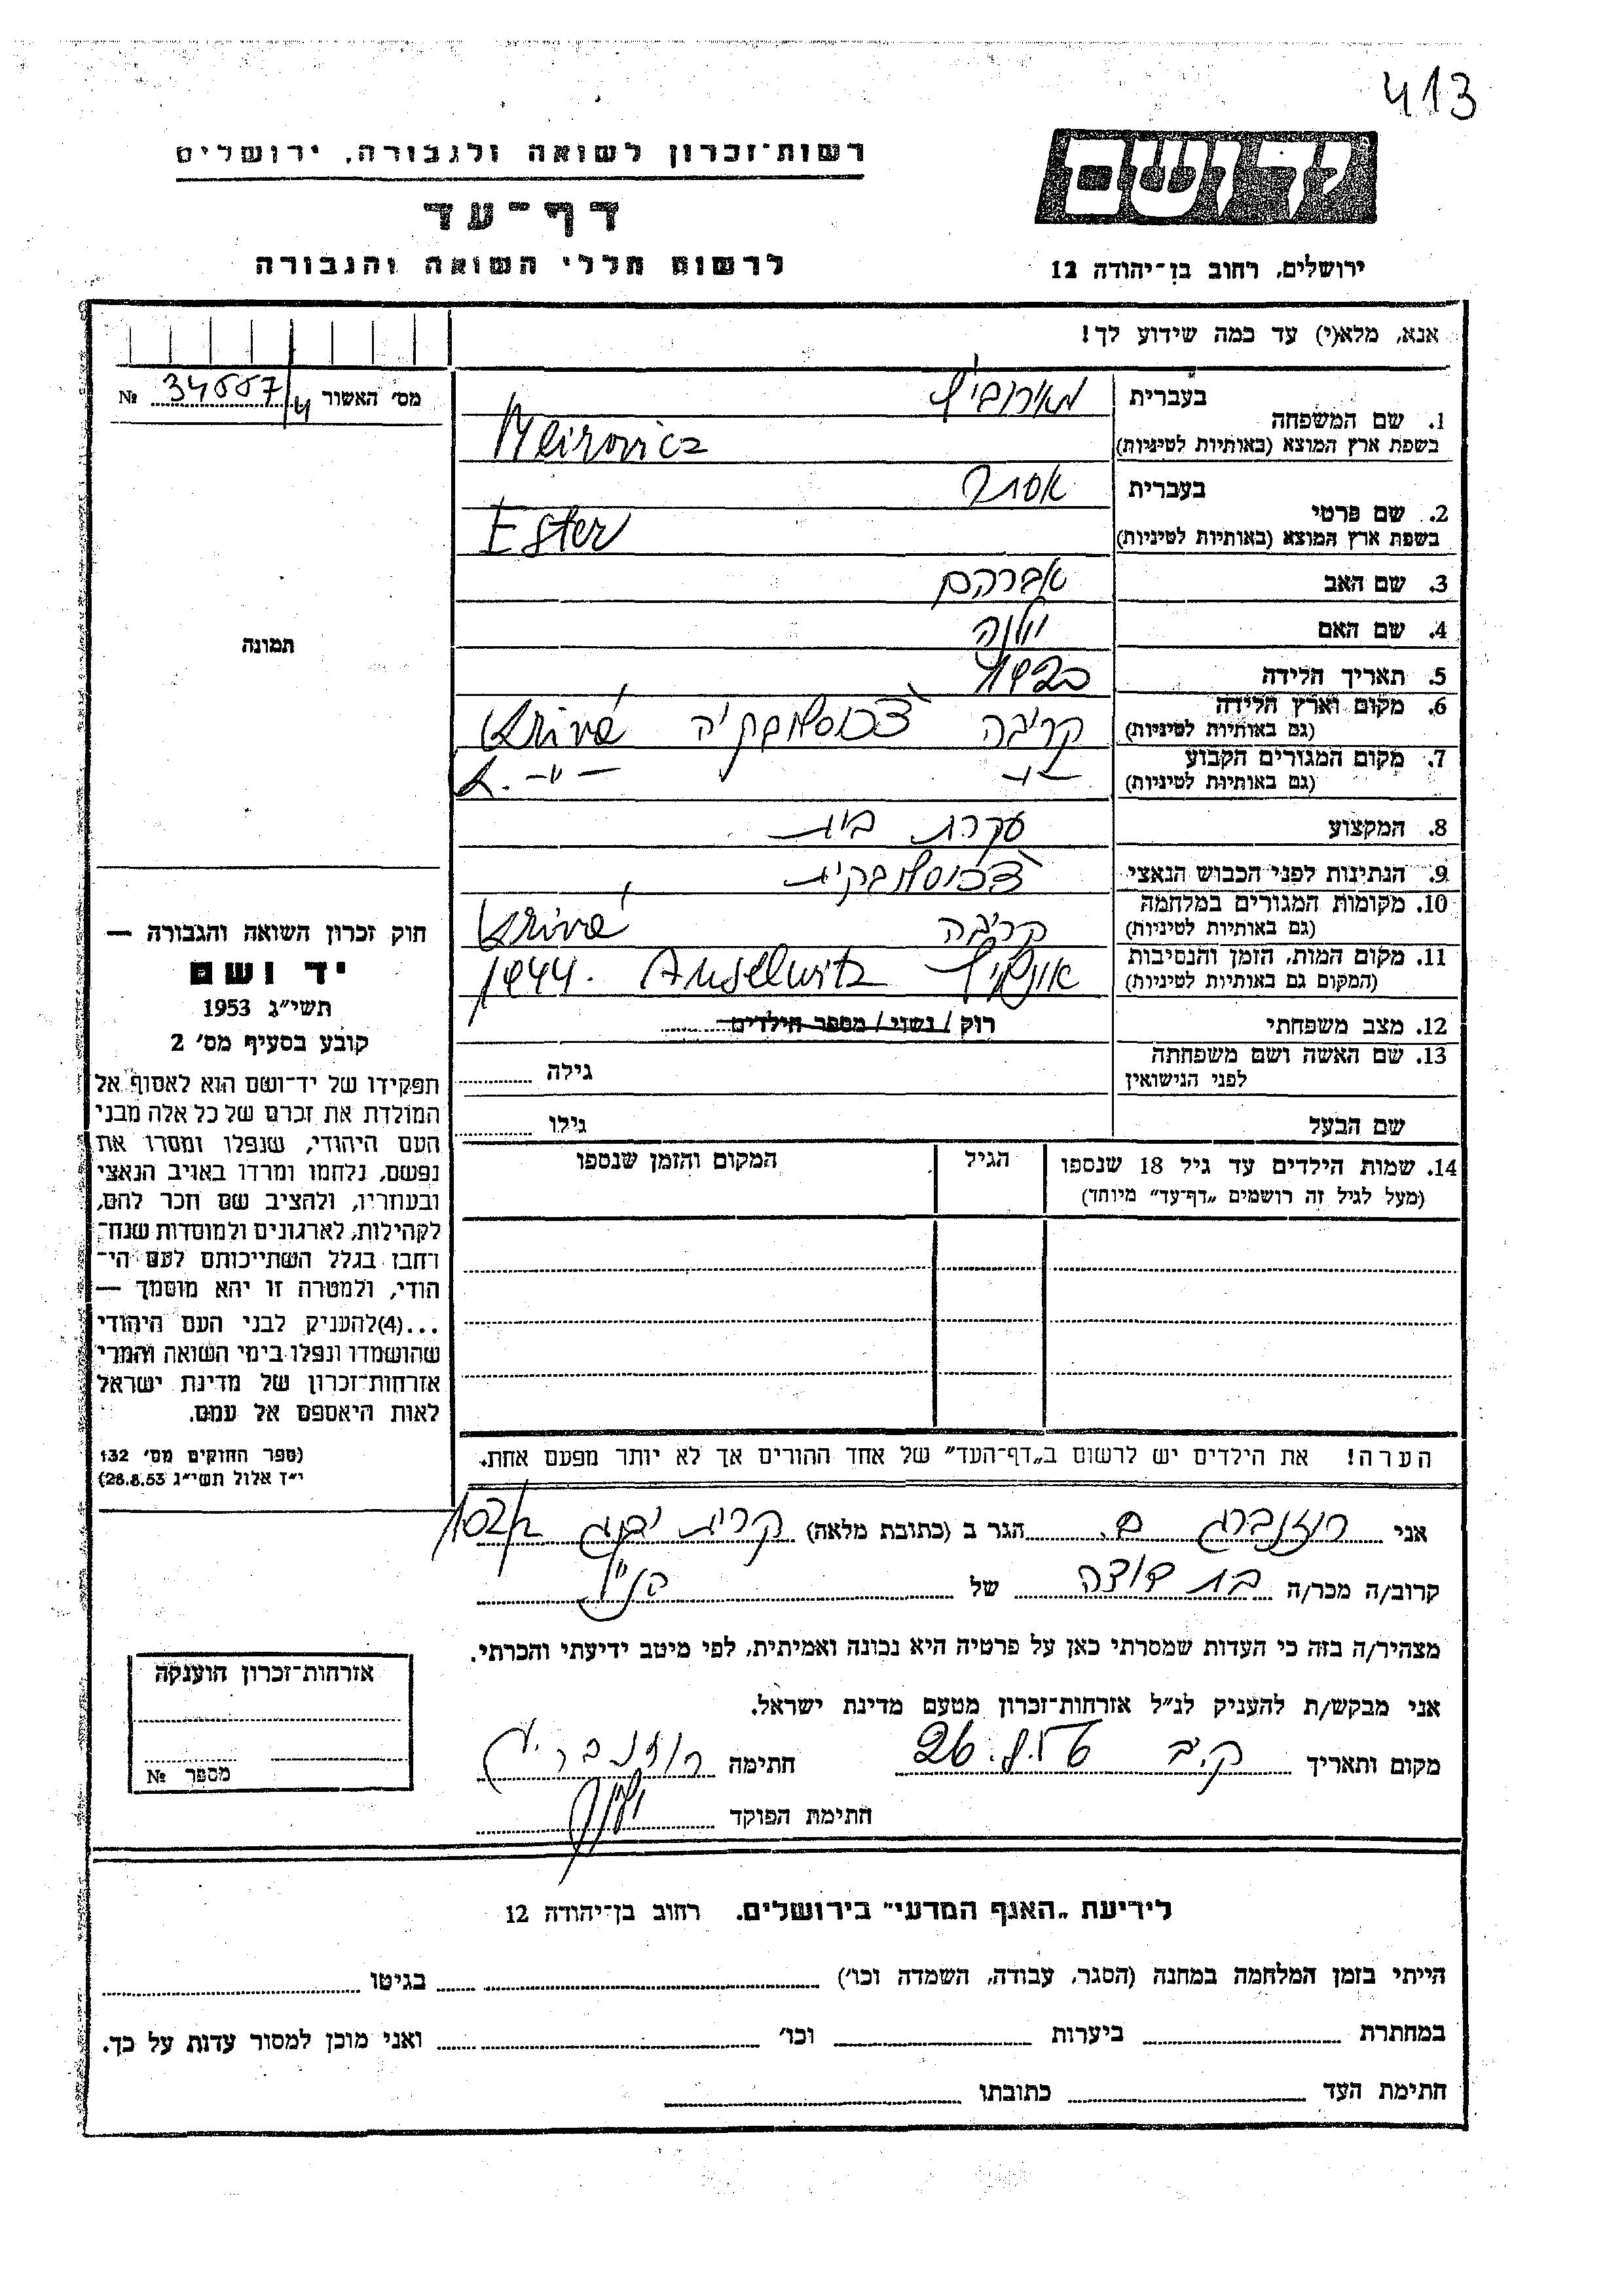 413
רשות־זכרון לשואה ולגבורה, ירושלים
דף־עד
לרשום חללי השואה והגבורה
יד ושם
ירושלים, רחוב בן־יהודה 12
אנא, מלא(י) עד כמה שידוע לך!
מס׳ האשור 34557/4 №
תמונה
1. שם המשפחה בעברית מאירוביץ
בשפת ארץ המוצא (באותיות לטיניות) Meirovicz
2. שם פרטי בעברית אסתר
בשפת ארץ המוצא (באותיות לטיניות) Ester
3. שם האב אברהם
4. שם האם
5. תאריך הלידה
6. מקום וארץ הלידה קריבה צ׳כוסלובקיה Krivé
(גם באותיות לטיניות)
7. מקום המגורים הקבוע –״– K. –״–
(גם באותיות לטיניות)
8. המקצוע עקרת בית
9. הנתינות לפני הכבוש הנאצי צ׳כוסלובקית
10. מקומות המגורים במלחמה קריבה Krivé
(גם באותיות לטיניות)
11. מקום המות, הזמן והנסיבות אושביץ Auschwitz 1944.
(המקום גם באותיות לטיניות)
12. מצב משפחתי רוק / נשוי / מספר הילדים
13. שם האשה ושם משפחתה גילה
לפני הנישואין
שם הבעל גילו
14. שמות הילדים עד גיל 18 שנספו הגיל המקום והזמן שנספו
(מעל לגיל זה רושמים „דף־עד״ מיוחד)
הערה! את הילדים יש לרשום ב„דף־העד״ של אחד ההורים אך לא יותר מפעם אחת.
חוק זכרון השואה והגבורה —
יד ושם
תשי״ג 1953
קובע בסעיף מס׳ 2
תפקידו של יד־ושם הוא לאסוף אל
המולדת את זכרם של כל אלה מבני
העם היהודי, שנפלו ומסרו את
נפשם, נלחמו ומרדו באויב הנאצי
ובעוזריו, ולהציב שם וזכר להם,
לקהילות, לארגונים ולמוסדות שנח־
רבו בגלל השתייכותם לעם הי־
הודי, ולמטרה זו יהא מוסמך —
...(4)להעניק לבני העם היהודי
שהושמדו ונפלו בימי השואה והמרי
אזרחות־זכרון של מדינת ישראל
לאות היאספם אל עמם.
(ספר החוקים מס׳ 132
י״ז אלול תשי״ג 28.8.53)
אני רוזנברג הגר ב (כתובת מלאה) קרית
קרוב/ה מכר/ה בת דודה של הנ״ל
מצהיר/ה בזה כי העדות שמסרתי כאן על פרטיה היא נכונה ואמיתית, לפי מיטב ידיעתי והכרתי.
אני מבקש/ת להעניק לנ״ל אזרחות־זכרון מטעם מדינת ישראל.
מקום ותאריך חתימה
חתימת הפוקד
אזרחות־זכרון הוענקה
מספר №
לידיעת „האגף המדעי״ בירושלים. רחוב בן־יהודה 12
הייתי בזמן המלחמה במחנה (הסגר, עבודה, השמדה וכו׳) בגיטו
במחתרת ביערות וכו׳ ואני מוכן למסור עדות על כך.
חתימת העד כתובתו